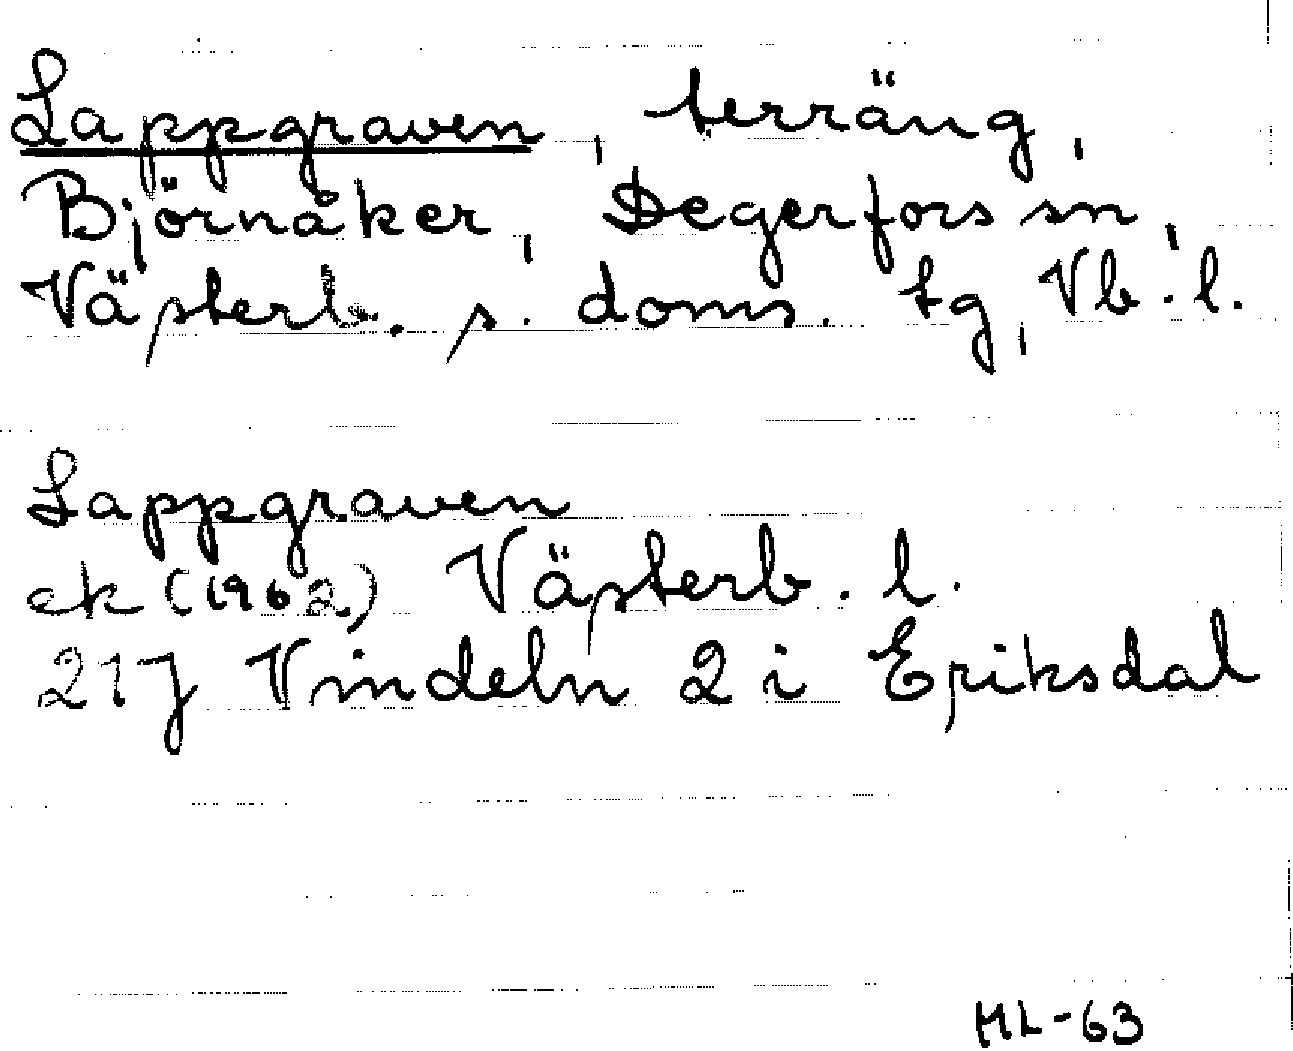 Lappgraven, terräng,
Björnåker, Degerfors sn,
Västerb. s. doms. tg, Vb. l.
Lappgraven
ek (1962) Västerb. l.
21J Vindeln 2 i Eriksdal
HL-63